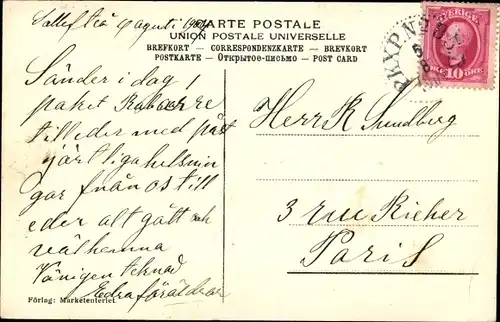 CARTE POSTALE
UNION POSTALE UNIVERSELLE
BREFKORT - CORRESPONDENZKARTE - BREVKORT
POSTKARTE - Открытое-письмо - POST CARD
SVERIGE
10 ÖRE
PKXP Nº 2
Sänder i dag 1
paket
till eder med påst
hjärtliga helsnin
gar från os till
eder alt gått och
väl hemma
Vänigen teknad
Edra föräldrar
Förlag: Marketenteriet.
Herr R. Sundberg
3 rue Richer
Paris